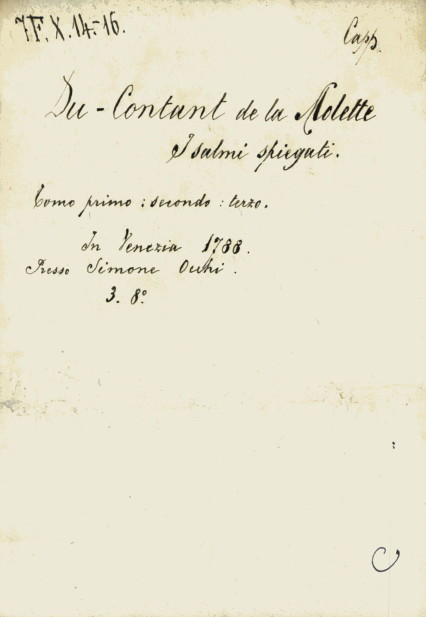 7F.X.14.-16.
Capp.
Du-Contant de la Molette
I salmi spiegati.
Tomo primo : secondo : terzo.
In Venezia 1788.
Presso Simone Occhi.
3. 8º